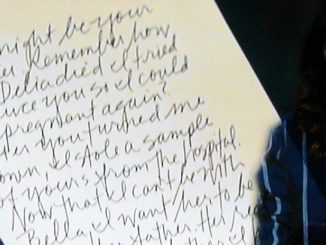 might be your
Remember how
Delia died I tried
you so I could
pregnant again?
you turned me
I stole a sample
of yours from the hospital.
Now that I can't be with
Bella, I want her to be
father. Her